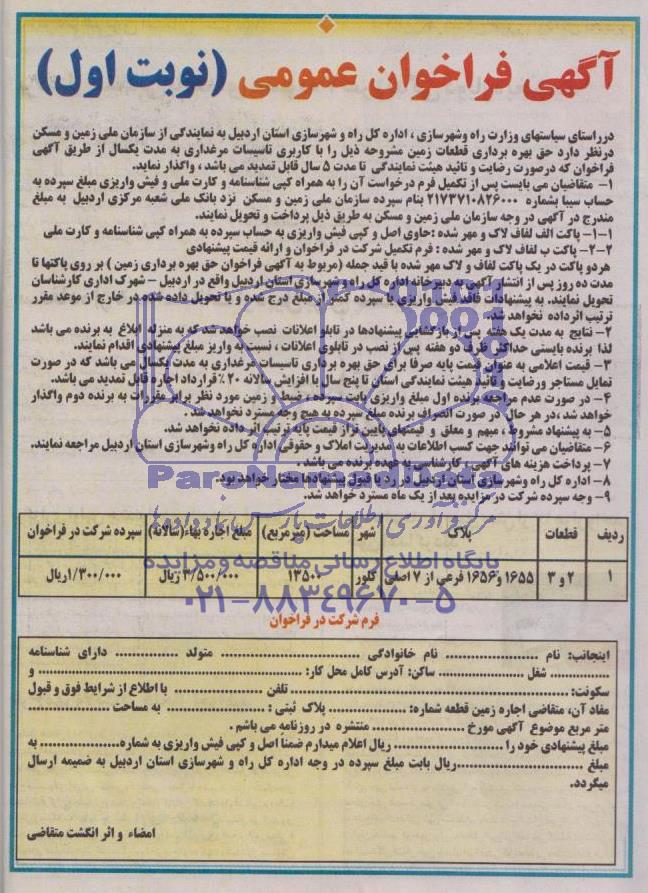 آگهی فراخوان عمومی (نوبت اول)
درراستای سیاستهای وزارت راه وشهرسازی ، اداره کل راه و شهرسازی استان اردبیل به نمایندگی از سازمان ملی زمین و مسکن
درنظر دارد حق بهره برداری قطعات زمین مشروحه ذیل را با کاربری تاسیسات مرغداری به مدت یکسال از طریق آگهی
فراخوان که درصورت رضایت و تائید هیئت نمایندگی تا مدت ۵ سال قابل تمدید می باشد ، واگذار نماید.
۱- متقاضیان می بایست پس از تکمیل فرم درخواست آن را به همراه کپی شناسنامه و کارت ملی و فیش واریزی مبلغ سپرده به
حساب سیبا بشماره ۲۱۷۳۷۱۰۸۲۶۰۰۰ بنام سپرده سازمان ملی زمین و مسکن نزد بانک ملی شعبه مرکزی اردبیل به مبلغ
مندرج در آگهی در وجه سازمان ملی زمین و مسکن به طریق ذیل پرداخت و تحویل نمایند.
۱-۱- پاکت الف لفاف لاک و مهر شده :حاوی اصل و کپی فیش واریزی به حساب سپرده به همراه کپی شناسنامه و کارت ملی
۲-۲- پاکت ب لفاف لاک و مهر شده : فرم تکمیل شرکت در فراخوان و ارائه قیمت پیشنهادی
هردو پاکت در یک پاکت لفاف و لاک مهر شده با قید جمله (مربوط به آگهی فراخوان حق بهره برداری زمین ) بر روی پاکتها تا
مدت ده روز پس از انتشار آگهی به دبیرخانه اداره کل راه و شهرسازی استان اردبیل واقع در اردبیل – شهرک اداری کارشناسان
تحویل نمایند. به پیشنهادات فاقد فیش واریزی یا سپرده کمتر از مبلغ درج شده و یا تحویل داده شده در خارج از موعد مقرر
ترتیب اثرداده نخواهد شد.
۲- نتایج به مدت یک هفته پس از بازگشایی پیشنهادها در تابلو اعلانات نصب خواهد شد که به منزله ابلاغ به برنده می باشد
لذا برنده بایستی حداکثر ظرف دو هفته پس از نصب در تابلوی اعلانات ، نسبت به واریز مبلغ پیشنهادی اقدام نمایند.
۳- قیمت اعلامی به عنوان قیمت پایه صرفا برای حق بهره برداری تاسیسات مرغداری به مدت یکسال می باشد که در صورت
تمایل مستاجر ورضایت و تائید هیئت نمایندگی استان تا پنج سال با افزایش سالانه ۲۰٪ قرارداد اجاره قابل تمدید می باشد.
۴- در صورت عدم مراجعه برنده اول مبلغ واریزی بابت سپرده ، ضبط و زمین مورد نظر برابر مقررات به برنده دوم واگذار
خواهد شد ،در هر حال در صورت انصراف برنده مبلغ سپرده به هیچ وجه مسترد نخواهد شد .
۵- به پیشنهاد مشروط ، مبهم و معلق و قیمتهای پایین تراز قیمت پایه ترتیب اثر داده نخواهد شد.
۶- متقاضیان می توانند جهت کسب اطلاعات به مدیریت املاک و حقوقی اداره کل راه وشهرسازی استان اردبیل مراجعه نمایند.
۷- پرداخت هزینه های آگهی ، کارشناسی به عهده برنده می باشد .
۸- اداره کل راه وشهرسازی استان اردبیل در رد یا قبول پیشنهادها مختار خواهد بود.
۹- وجه سپرده شرکت در مزایده بعد از یک ماه مسترد خواهد شد.
ParsNamadData
مرکز فرآوری اطلاعات پارس نماد داده ها
ردیف قطعات پلاک شهر مساحت (مترمربع) مبلغ اجاره بهاء(سالانه) سپرده شرکت در فراخوان
پایگاه اطلاع رسانی مناقصه و مزایده
۱ ۲ و ۳ ۱۶۵۵ و ۱۶۵۶ فرعی از ۷ اصلی کلور ۱۳۵۰۰ ۳/۵۰۰/۰۰۰ ریال ۱/۳۰۰/۰۰۰ریال
۰۲۱-۸۸۳۴۹۶۷۰-۵
فرم شرکت در فراخوان
اینجانب: نام .................... نام خانوادگی .................... متولد .................... دارای شناسنامه
.................... شغل .................... ساکن: آدرس کامل محل کار: .................... و
سکونت: .................... تلفن .................... با اطلاع از شرایط فوق و قبول
مفاد آن، متقاضی اجاره زمین قطعه شماره: .................... پلاک ثبتی : .................... به مساحت ....................
متر مربع موضوع آگهی مورخ .................... منتشره در روزنامه می باشم .
مبلغ پیشنهادی خود را .................... ریال اعلام میدارم ضمنا اصل و کپی فیش واریزی به شماره.................... به
مبلغ ....................ریال بابت مبلغ سپرده در وجه اداره کل راه و شهرسازی استان اردبیل به ضمیمه ارسال
میگردد.
امضاء و اثر انگشت متقاضی